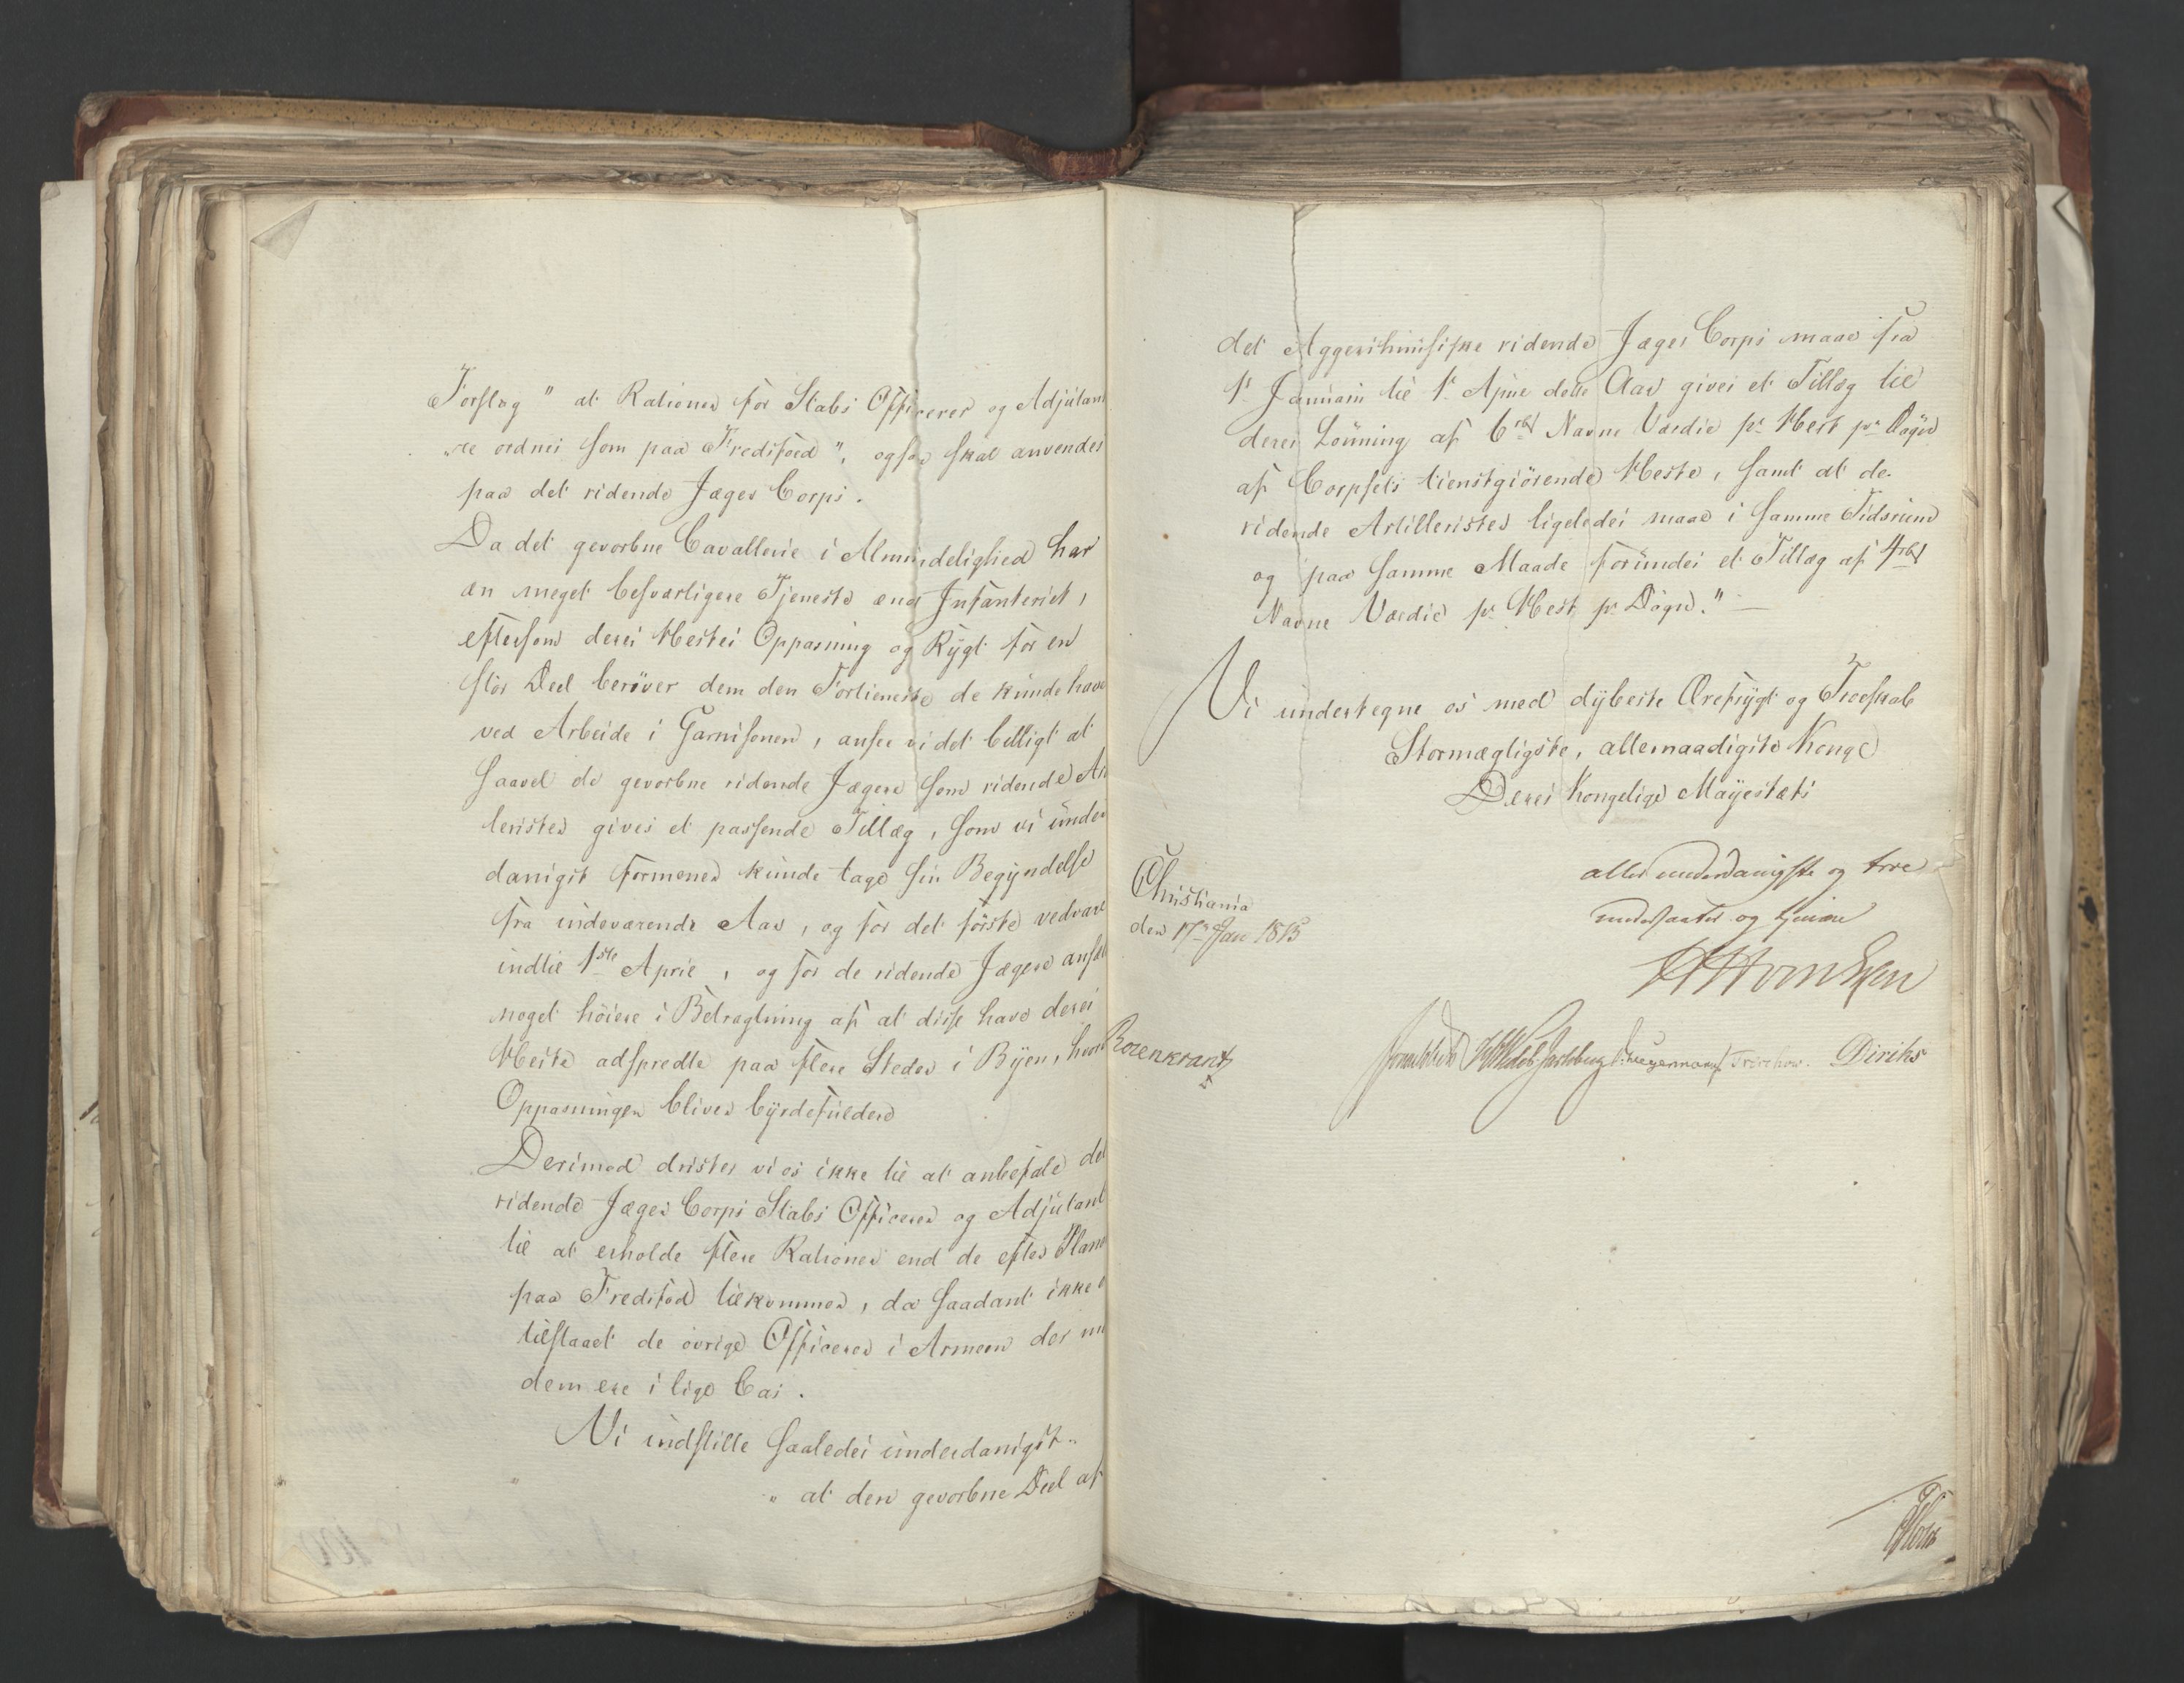 Forslag " at Rationer for Stabs Officerer og Adjutan
-re ordnes som paa Fredsfoed", ogsaa skal anvendes
paa det ridende Jæger Corps.
Da det gevorbne Cavallerie i Almindelighed har
en meget besværligere Tjeneste end Infanteriet,
eftersom deres Hestes Oppasning og Rygt for en
stor Deel berøver dem den Fortieneste de kunde have
ved Arbeide i Garnisonen, ansee vi det billigt at
saavel de gevorbne ridende Jægere som ridende Ar
lerister gives et passende Tillæg, som vi under
danigst formener kunde tage sin Begyndelse
fra indeværende Aar, og for det første vedvare
indtil 1ste April, og for de ridende Jægere ansæt
noget høiere i Betragtning af at disse have deres
Heste adspredte paa flere Steder i Byen, hvor
Oppasningen bliver byrdefulldere
Derimod drister vi os ikke til at anbefale det
ridende Jæger Corps Stabs Officerer og Adjutant
til at erholde flere Rationer end de efter Plane
paa Fredsfod tilkommer, da saadant ikke e
tilstaaet de øvrige Officerer i Armeen der
dem ere i lige Cas.
Vi indstille saaledes underdanigst.
" at den gevorbne Deel af
det Aggershusiske ridende Jæger Corps maae fra
1t Januarii til 1t April dette Aar gives et Tillæg til
deres Lønning af 6rbß Navne Værdie pr Hest pr Døgn
af Corpsets tienstgiørende Heste, samt at de
ridende Artillerister ligeledes maae i samme Tidsrum
og paa samme Maade forundes et Tillæg af 4rbß
Navne Værdie pr Hest pr Døgn."
Vi undertegne os med dybeste Ærefrygt og Troeskab
Stormægtigste, allernaadigste Konge
Deres Kongelige Mayestæts
allerunderdanigste og troe
undersaatter og tjenere
Christiania
den 17de Jan 1815
Rosenkrantz
Treschow. Diriks